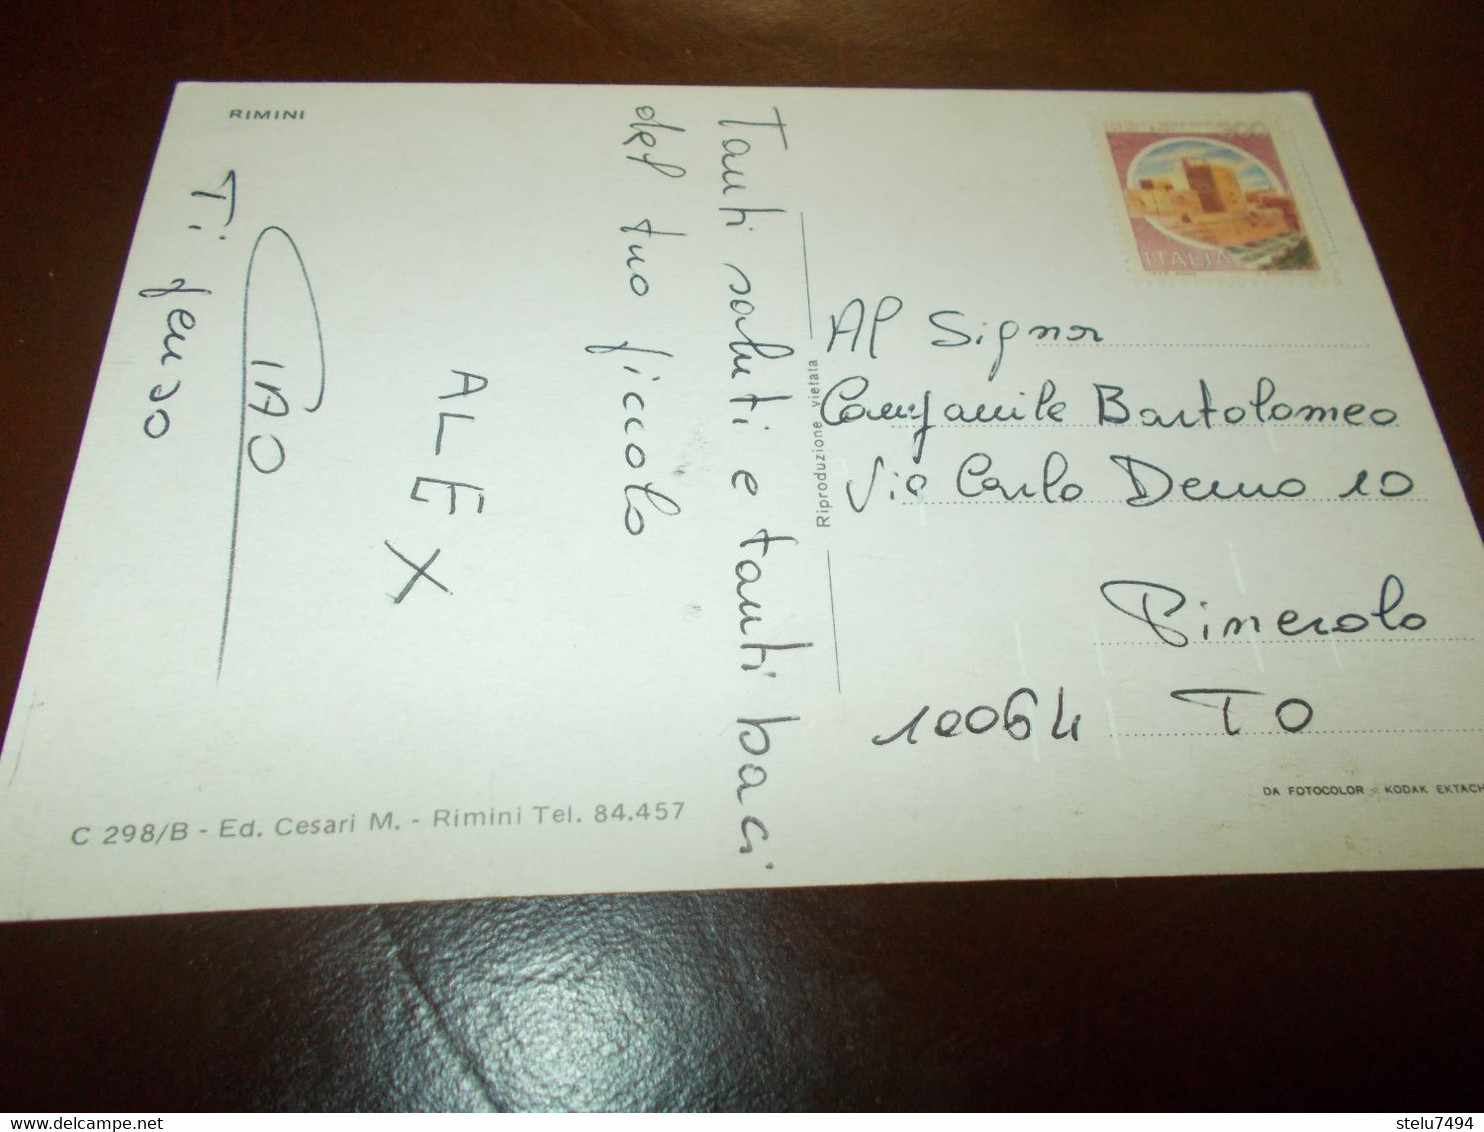 RIMINI
Tanti saluti e tanti baci
del tuo piccolo
ALEX
CIAO
Ti penso
C 298/B - Ed. Cesari M. - Rimini Tel. 84.457
Riproduzione vietata
300
ITALIA
Al Signor
Campanile Bartolomeo
Via Carlo Demo 10
Pinerolo
10064 TO
DA FOTOCOLOR - KODAK EKTACH
delcampe.net
stelu7494